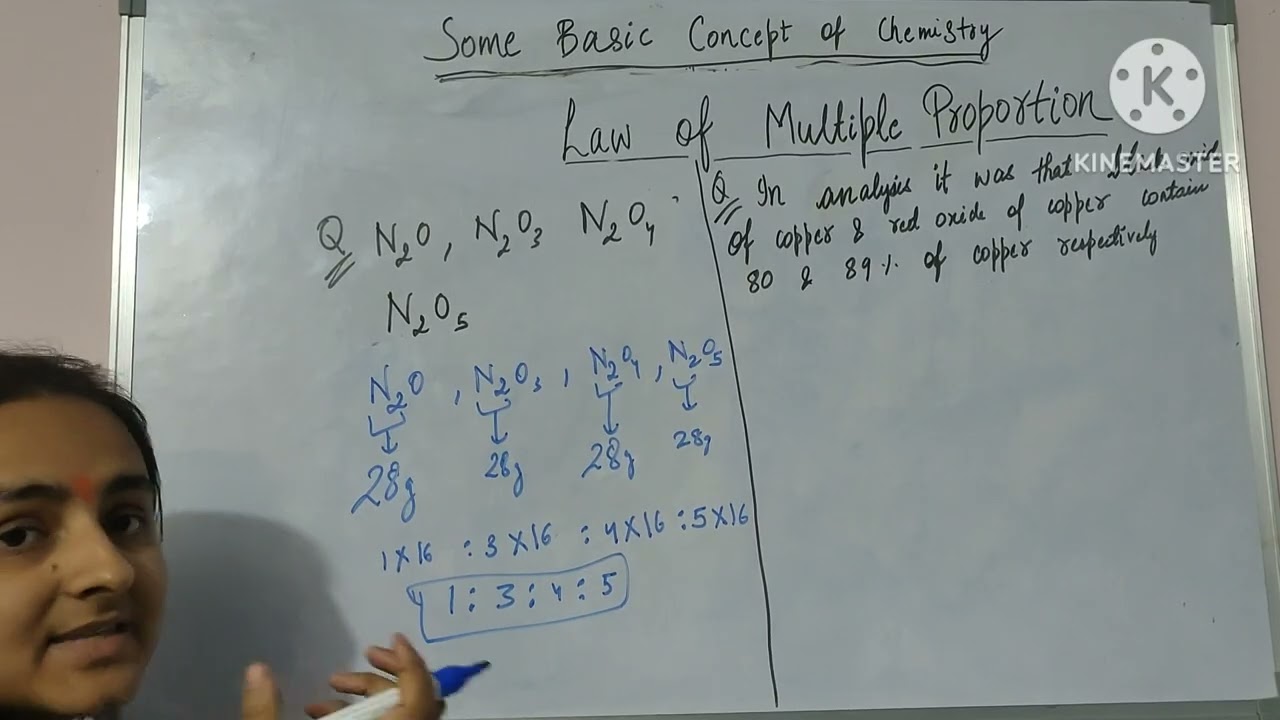 Some Basic Concept of Chemistry
Law of Multiple Proportion
K
KINEMASTER
Q N₂O, N₂O₃ N₂O₄,
N₂O₅
N₂O, N₂O₃, N₂O₄, N₂O₅
28g 28g 28g 28g
1×16 : 3×16 : 4×16 : 5×16
1 : 3 : 4 : 5
Q In analysis it was that
of copper & red oxide of copper contain
80 & 89% of copper respectively